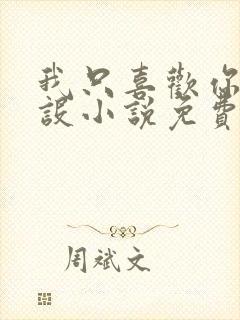 我只喜歡你
設小說免費
周斌文